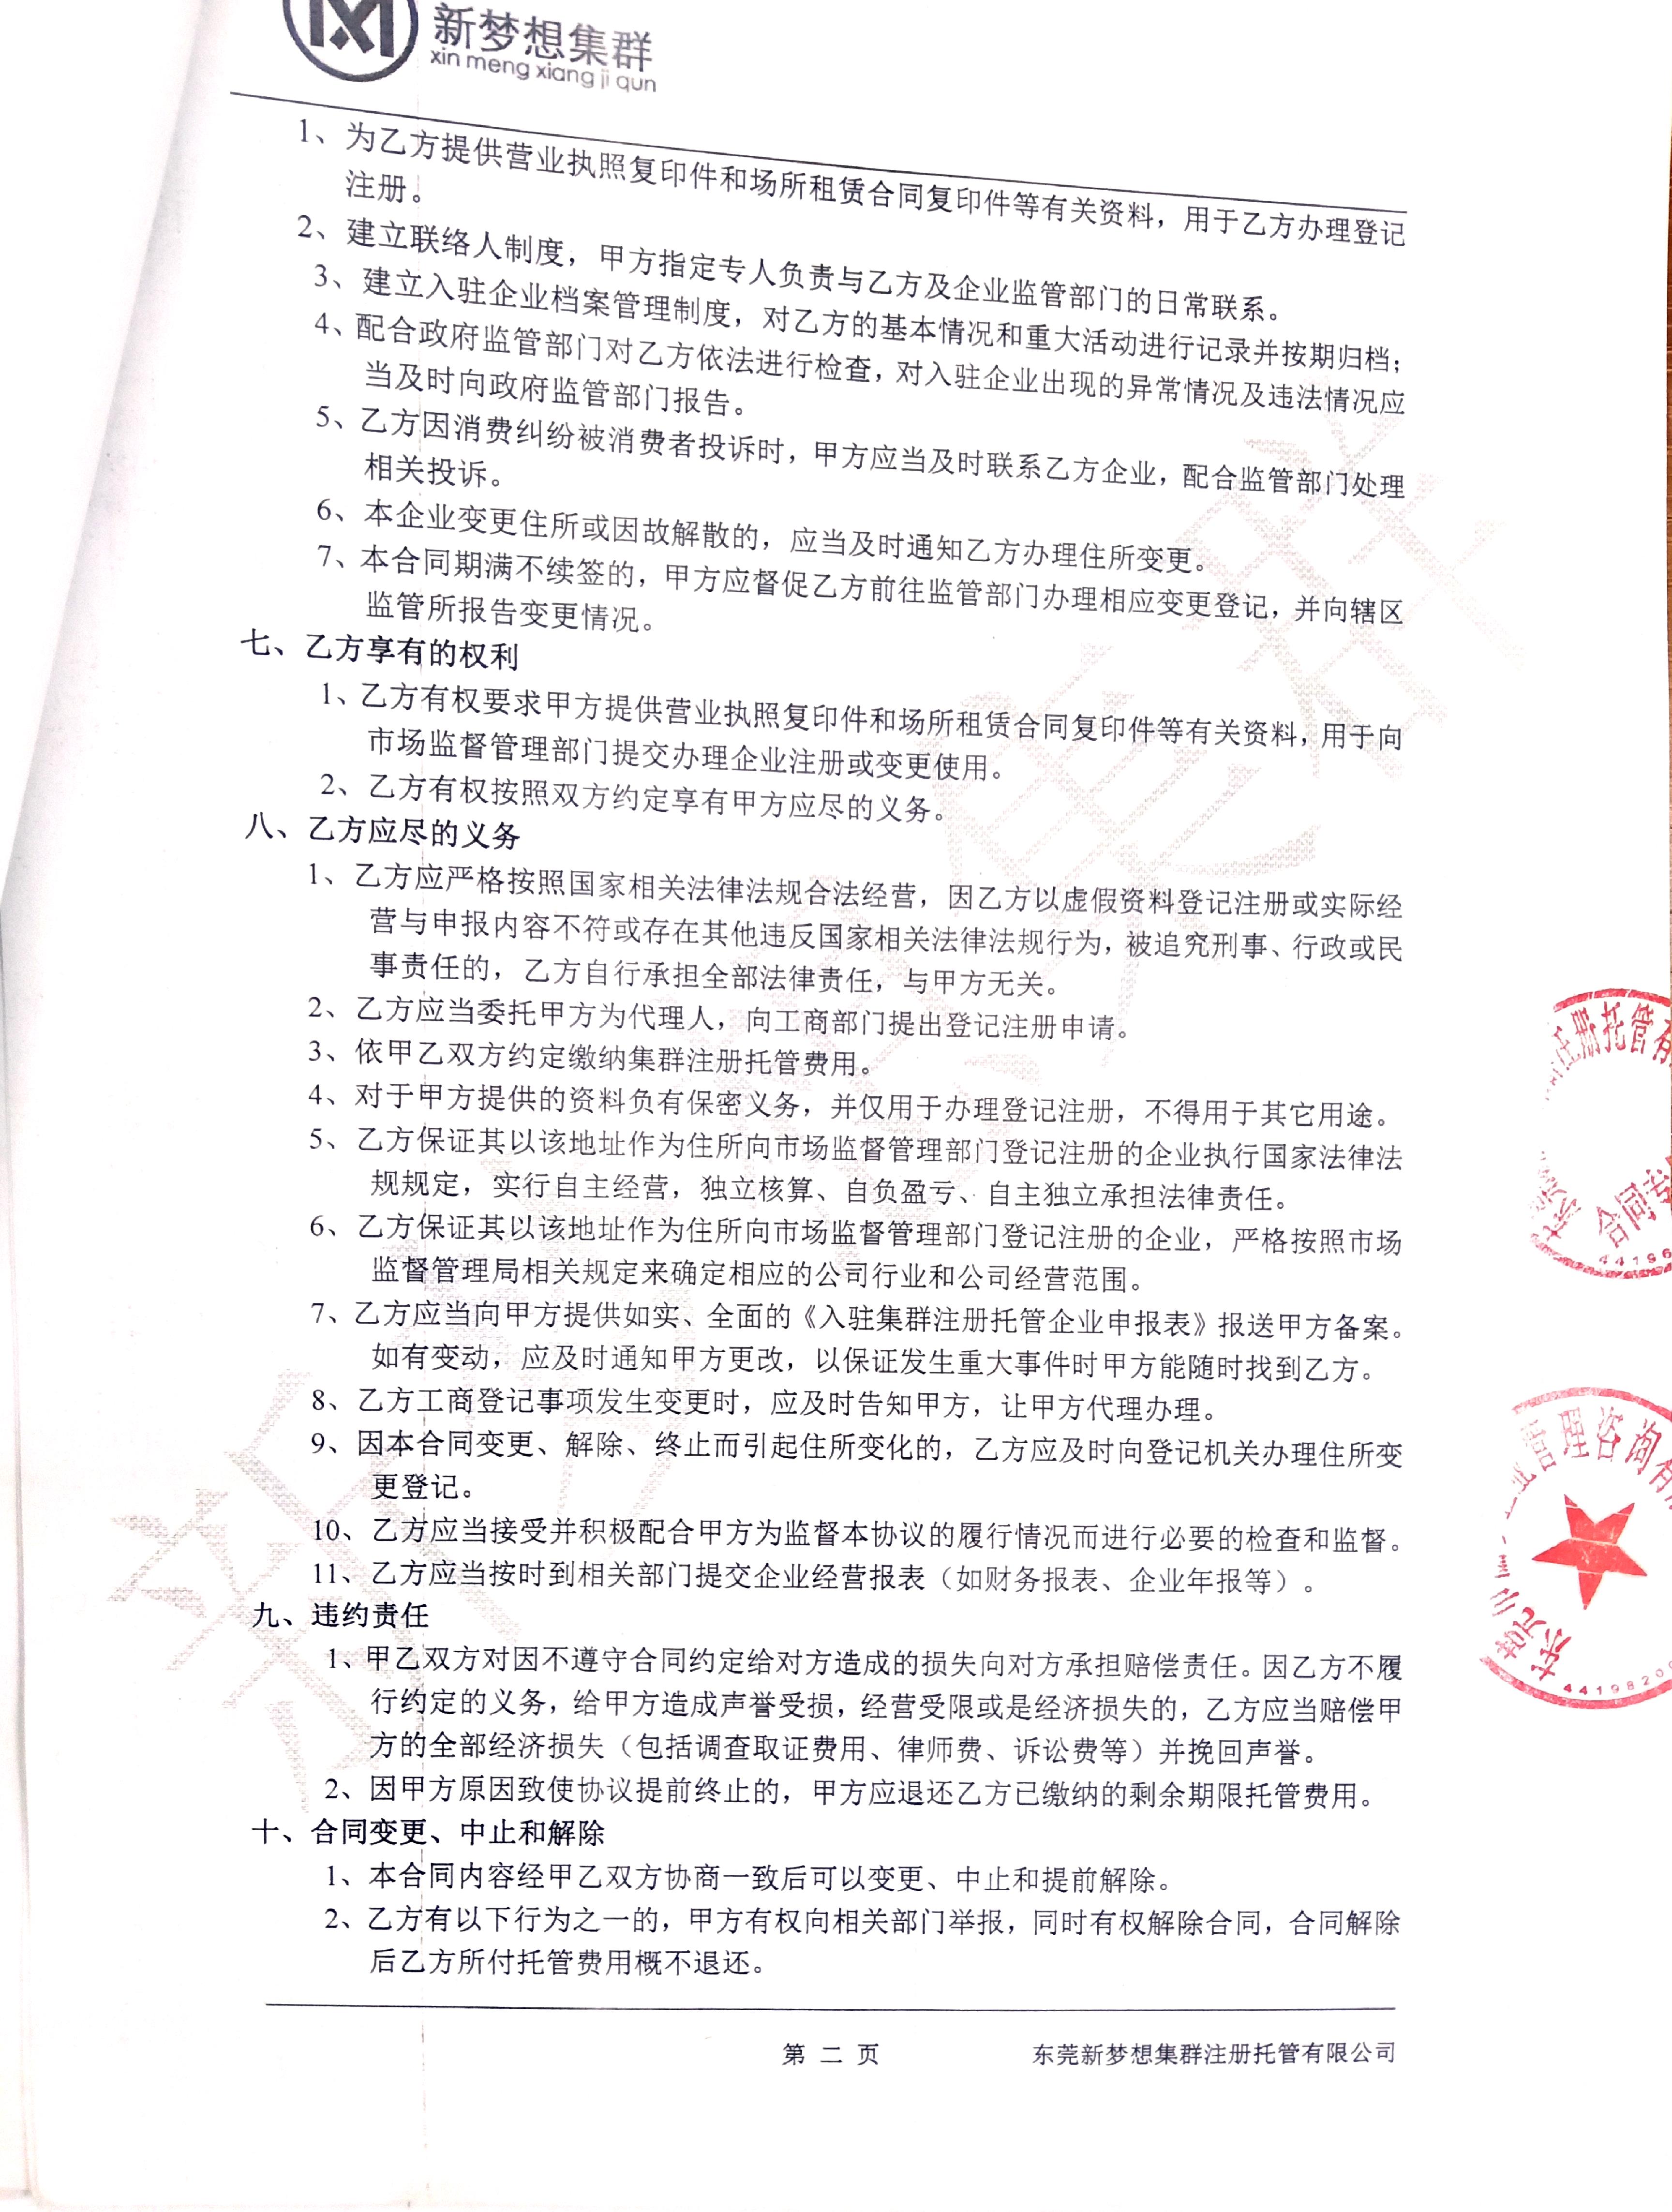 新梦想集群
xin meng xiang ji qun
1、为乙方提供营业执照复印件和场所租赁合同复印件等有关资料，用于乙方办理登记
注册。
2、建立联络人制度，甲方指定专人负责与乙方及企业监管部门的日常联系。
3、建立入驻企业档案管理制度，对乙方的基本情况和重大活动进行记录并按期归档；
4、配合政府监管部门对乙方依法进行检查，对入驻企业出现的异常情况及违法情况应
当及时向政府监管部门报告。
5、乙方因消费纠纷被消费者投诉时，甲方应当及时联系乙方企业，配合监管部门处理
相关投诉。
6、本企业变更住所或因故解散的，应当及时通知乙方办理住所变更。
7、本合同期满不续签的，甲方应督促乙方前往监管部门办理相应变更登记，并向辖区
监管所报告变更情况。
七、乙方享有的权利
1、乙方有权要求甲方提供营业执照复印件和场所租赁合同复印件等有关资料，用于向
市场监督管理部门提交办理企业注册或变更使用。
2、乙方有权按照双方约定享有甲方应尽的义务。
八、乙方应尽的义务
1、乙方应严格按照国家相关法律法规合法经营，因乙方以虚假资料登记注册或实际经
营与申报内容不符或存在其他违反国家相关法律法规行为，被追究刑事、行政或民
事责任的，乙方自行承担全部法律责任，与甲方无关。
2、乙方应当委托甲方为代理人，向工商部门提出登记注册申请。
3、依甲乙双方约定缴纳集群注册托管费用。
4、对于甲方提供的资料负有保密义务，并仅用于办理登记注册，不得用于其它用途。
5、乙方保证其以该地址作为住所向市场监督管理部门登记注册的企业执行国家法律法
规规定，实行自主经营，独立核算、自负盈亏、自主独立承担法律责任。
6、乙方保证其以该地址作为住所向市场监督管理部门登记注册的企业，严格按照市场
监督管理局相关规定来确定相应的公司行业和公司经营范围。
7、乙方应当向甲方提供如实、全面的《入驻集群注册托管企业申报表》报送甲方备案。
如有变动，应及时通知甲方更改，以保证发生重大事件时甲方能随时找到乙方。
8、乙方工商登记事项发生变更时，应及时告知甲方，让甲方代理办理。
9、因本合同变更、解除、终止而引起住所变化的，乙方应及时向登记机关办理住所变
更登记。
10、乙方应当接受并积极配合甲方为监督本协议的履行情况而进行必要的检查和监督。
11、乙方应当按时到相关部门提交企业经营报表（如财务报表、企业年报等）。
九、违约责任
1、甲乙双方对因不遵守合同约定给对方造成的损失向对方承担赔偿责任。因乙方不履
行约定的义务，给甲方造成声誉受损，经营受限或是经济损失的，乙方应当赔偿甲
方的全部经济损失（包括调查取证费用、律师费、诉讼费等）并挽回声誉。
2、因甲方原因致使协议提前终止的，甲方应退还乙方已缴纳的剩余期限托管费用。
十、合同变更、中止和解除
1、本合同内容经甲乙双方协商一致后可以变更、中止和提前解除。
2、乙方有以下行为之一的，甲方有权向相关部门举报，同时有权解除合同，合同解除
后乙方所付托管费用概不退还。
第 二 页
东莞新梦想集群注册托管有限公司
册托管有
合同专
44196
管理咨询有
东莞
4419820